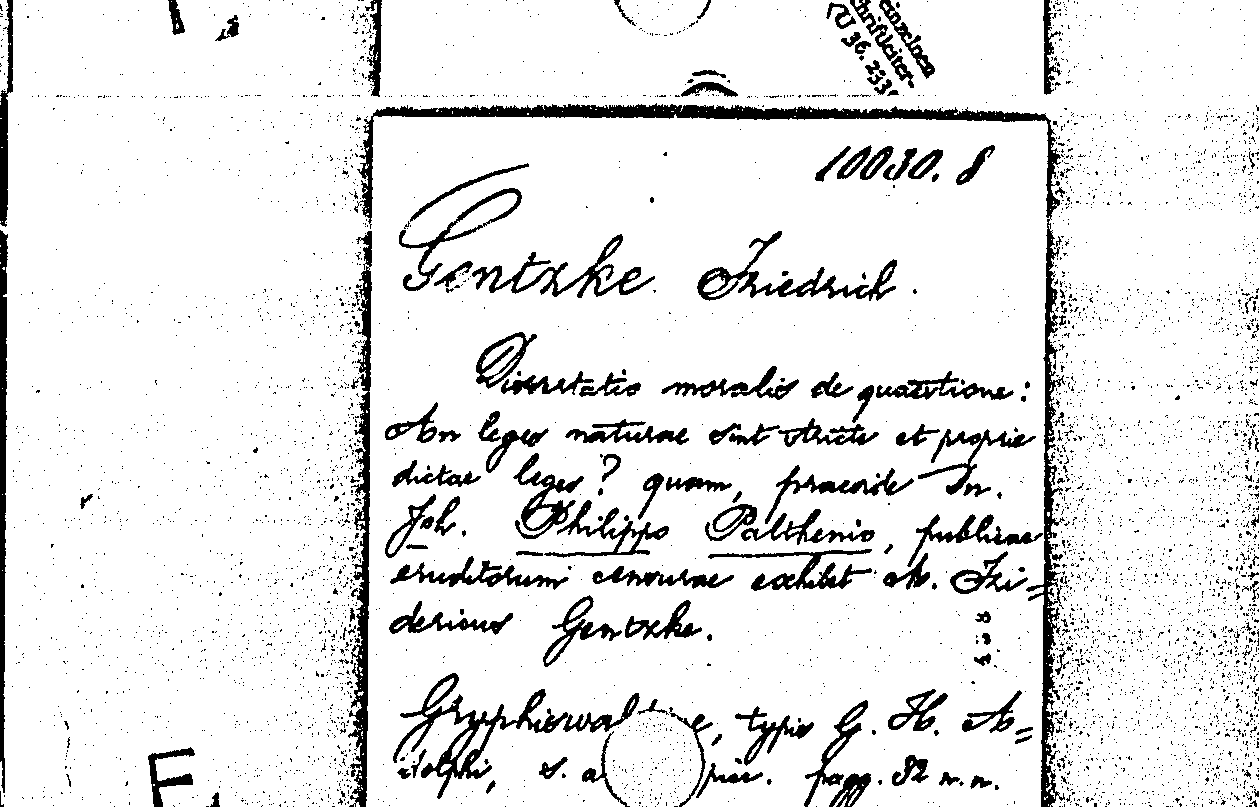 einzelnen
chriftleiter-
(U 36. 233
10030. 8
Gentzke Friedrich.
Dissertatio moralis de quaestione:
An leges naturae sint stricte et proprie
dictae leges? quam, praeside Dn.
Joh. Philippo Palthenio, publicae
eruditorum censurae exhibet M. Fri=
dericus Gentzke.
Gryphiswal
e, typis G. H. A=
dolphi, s. a
pag. 32 n. n.
E